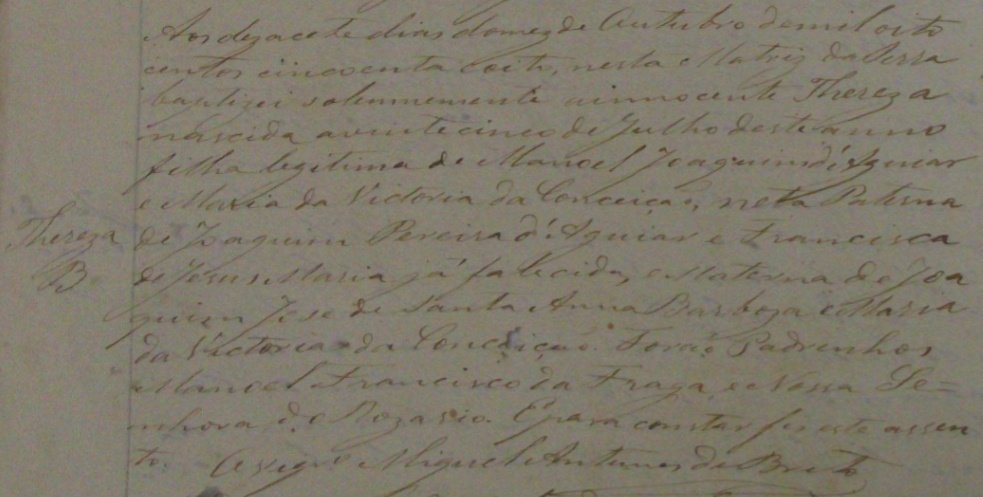 Aos dezacete dias do mez de Outubro de mil oito
centos cincoenta e oito, nesta Matriz da Serra
baptizei solemnemente a innocente Thereza
nascida a vinte cinco de Julho deste anno
filha legitima de Manoel Joaquim d'Aguiar
e Maria da Victoria da Conceição, neta Paterna
Thereza de Joaquim Pereira d'Aguiar e Francisca
B de Jesus Maria já falecida, e Materna de Joa
quim Jose de Santa Anna Barboza e Maria
da Victoria da Conceição. Forão Padrinhos
Manoel Francisco da Fraga, e Nossa Se=
nhora do Rozario. E para constar fiz este assen
to. O Vigrº Miguel Antunes de Brito